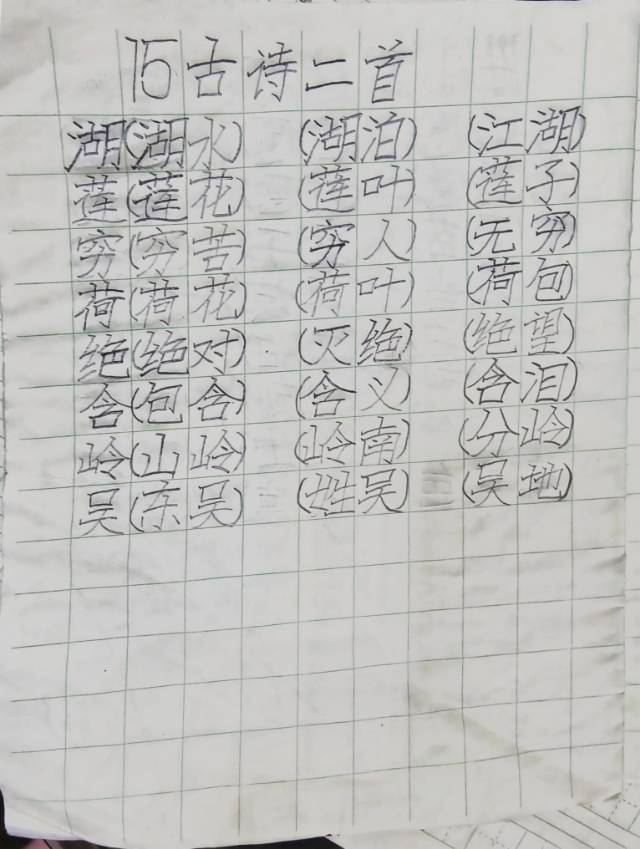 15古诗二首
湖(湖水) (湖泊) (江湖)
莲(莲花) (莲叶) (莲子)
穷(穷苦) (穷人) (无穷)
荷(荷花) (荷叶) (荷包)
绝(绝对) (灭绝) (绝望)
含(包含) (含义) (含泪)
岭(山岭) (岭南) (分岭)
吴(东吴) (姓吴) (吴地)